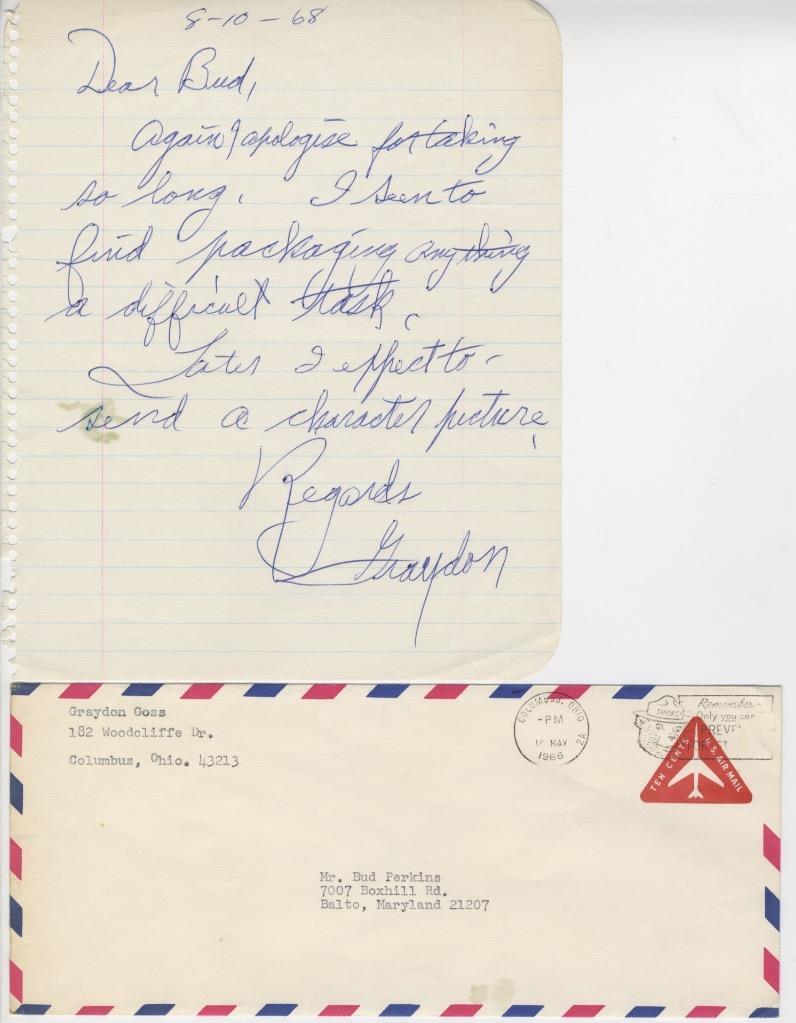 8-10-68
Dear Bud,
Again I apologise for taking
so long. I seem to
find packaging anything
a difficult task.
Later I expect to
send a character picture.
Regards
Graydon
Graydon Goss
182 Woodcliffe Dr.
Columbus, Ohio. 43213
COLUMBUS, OHIO
-PM
MAY
1968
2A
SMOKEY
Remember-
Only you can
PREVE
TEN CENTS
U.S. AIR MAIL
Mr. Bud Perkins
7007 Boxhill Rd.
Balto, Maryland 21207